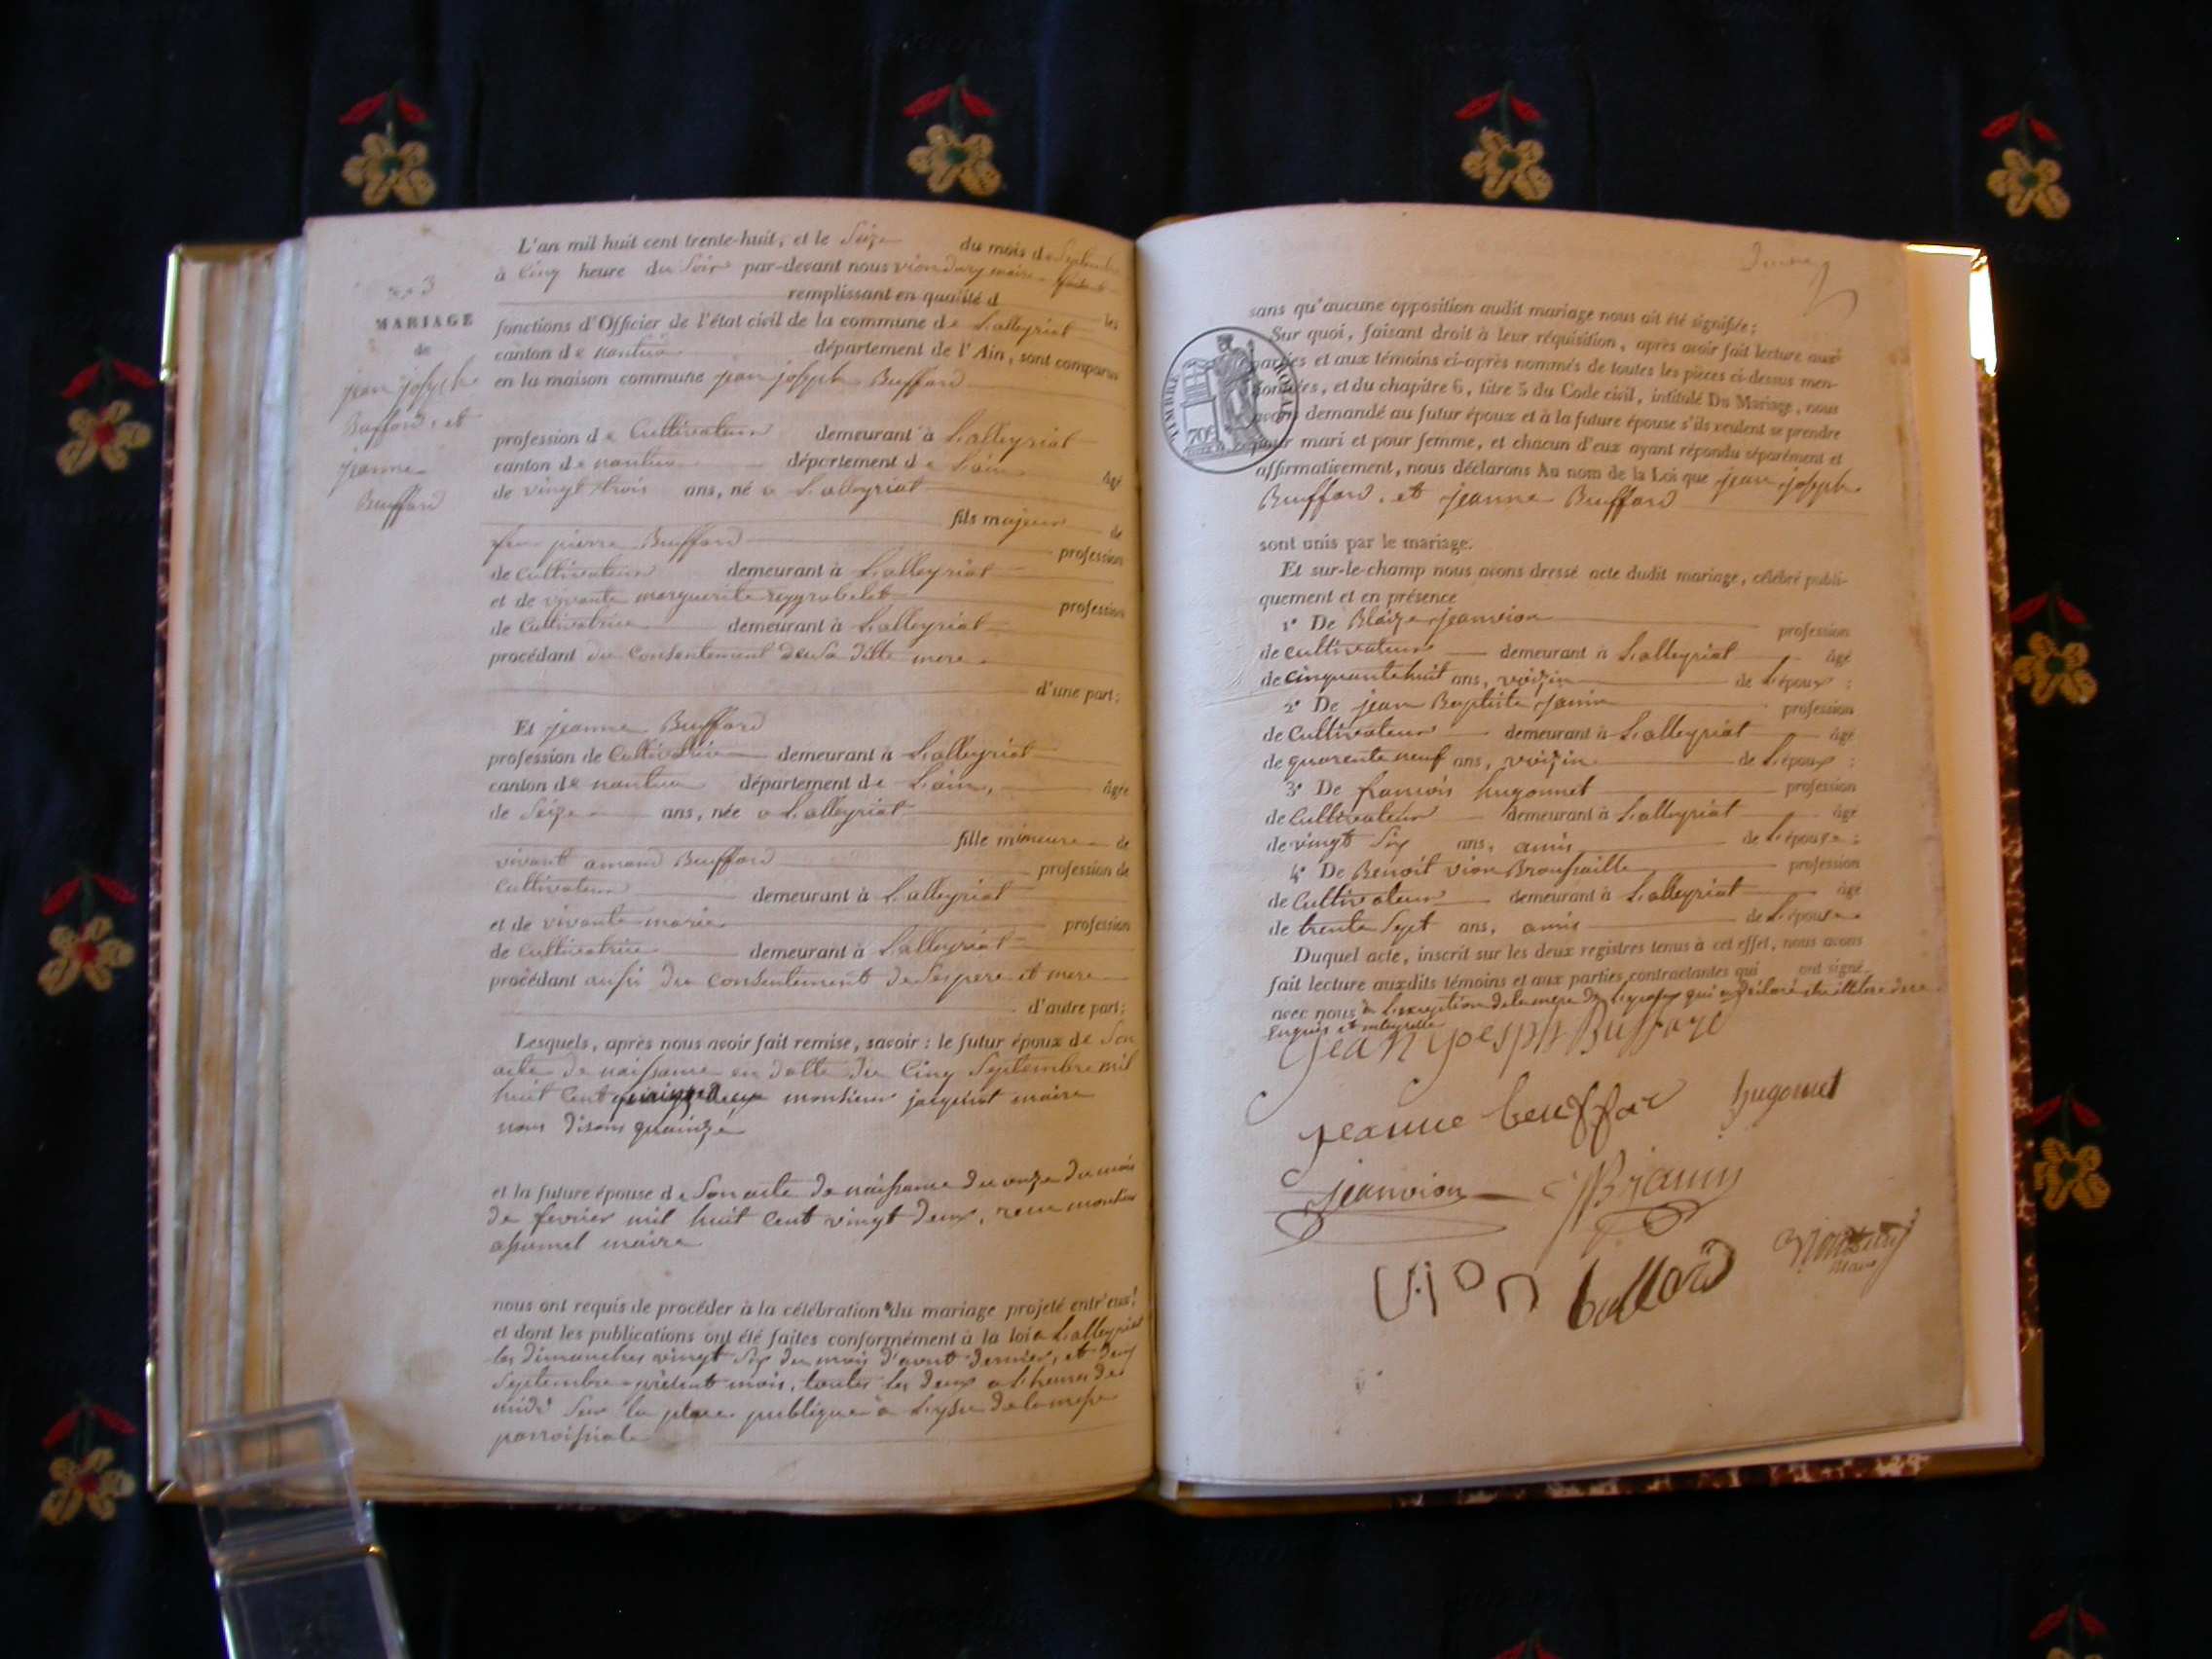 L'an mil huit cent trente-huit, et le Seize du mois de Septembre
à Cinq heure du Soir par-devant nous vion dury maire
remplissant en qualité d les
fonctions d'Officier de l'état civil de la commune de L'alleyriat
canton de nantua département de l'Ain, sont comparus
en la maison commune jean joseph Buffard
No 3
MARIAGE
de
jean joseph
Buffard, et
jeanne
Buffard
profession de Cultivateur demeurant à L'alleyriat
canton de nantua département de L'ain âgé
de vingt trois ans, né a L'alleyriat
fils majeur de
feu pierre Buffard profession
de Cultivateur demeurant à L'alleyriat
et de vivante marguerite profession
de Cultivatrice demeurant à L'alleyriat
procédant du Consentement de sa ditte mere
d'une part;
Et jeanne Buffard
profession de Cultivatrice demeurant à L'alleyriat
canton de nantua département de L'ain, âgée
de Seize ans, née a L'alleyriat
fille mineure de
vivant amand Buffard profession de
Cultivateur demeurant à L'alleyriat
et de vivante marie profession
de Cultivatrice demeurant à L'alleyriat
procédant aussi du Consentement de Ses pere et mere
d'autre part;
Lesquels, après nous avoir fait remise, savoir: le futur époux de Son
acte de naissance en datte du Cinq Septembre mil
huit Cent monsieur jacquiot maire
nous disons quainze
et la future épouse de Son acte de naissance du onze du mois
de fevrier mil huit Cent vingt deux, recu monsieur
maire
nous ont requis de procéder à la célébration du mariage projeté entr'eux!
et dont les publications ont été faites conformément à la loi a L'alleyriat
les dimanches vingt Six du mois d'aout dernier, et deux
Septembre présent mois, toutes les deux a L'heure de
midi Sur la place publique a L'ysue de la messe
parroissiale
sans qu'aucune opposition audit mariage nous ait été signifiée;
Sur quoi, faisant droit à leur réquisition, après avoir fait lecture aux
parties et aux témoins ci-après nommés de toutes les pièces ci-dessus men-
tionnées, et du chapitre 6, titre 5 du Code civil, intitulé Du Mariage, nous
avons demandé au futur époux et à la future épouse s'ils veulent se prendre
pour mari et pour femme, et chacun d'eux ayant répondu séparément et
affirmativement, nous déclarons Au nom de la Loi que jean joseph
Buffard, et jeanne Buffard
TIMBRE ROYAL
70c
sont unis par le mariage.
Et sur-le-champ nous avons dressé acte dudit mariage, célébré publi-
quement et en présence
1° De Blaize jeanvion profession
de cultivateur demeurant à L'alleyriat âgé
de cinquante huit ans, voizin de L'époux;
2° De jean Baptiste janin profession
de Cultivateur demeurant à L'alleyriat âgé
de quarente neuf ans, voizin de L'époux;
3° De francois hugonnet profession
de Cultivateur demeurant à L'alleyriat âgé
de vingt Six ans, amis de L'épouse;
4° De Benoit vion Broussaille profession
de Cultivateur demeurant à L'alleyriat âgé
de trente Sept ans, amis de L'épouse
Duquel acte, inscrit sur les deux registres tenus à cet effet, nous avons
fait lecture auxdits témoins et aux parties contractantes qui ont signé
avec nous a L'exception de la mere de L'epoux qui a déclaré etre illitere de ce
enquis et
jean joesph Buffard
jeanne beuffar hugonnet
jeanvion JB janin
vion ballard
maire